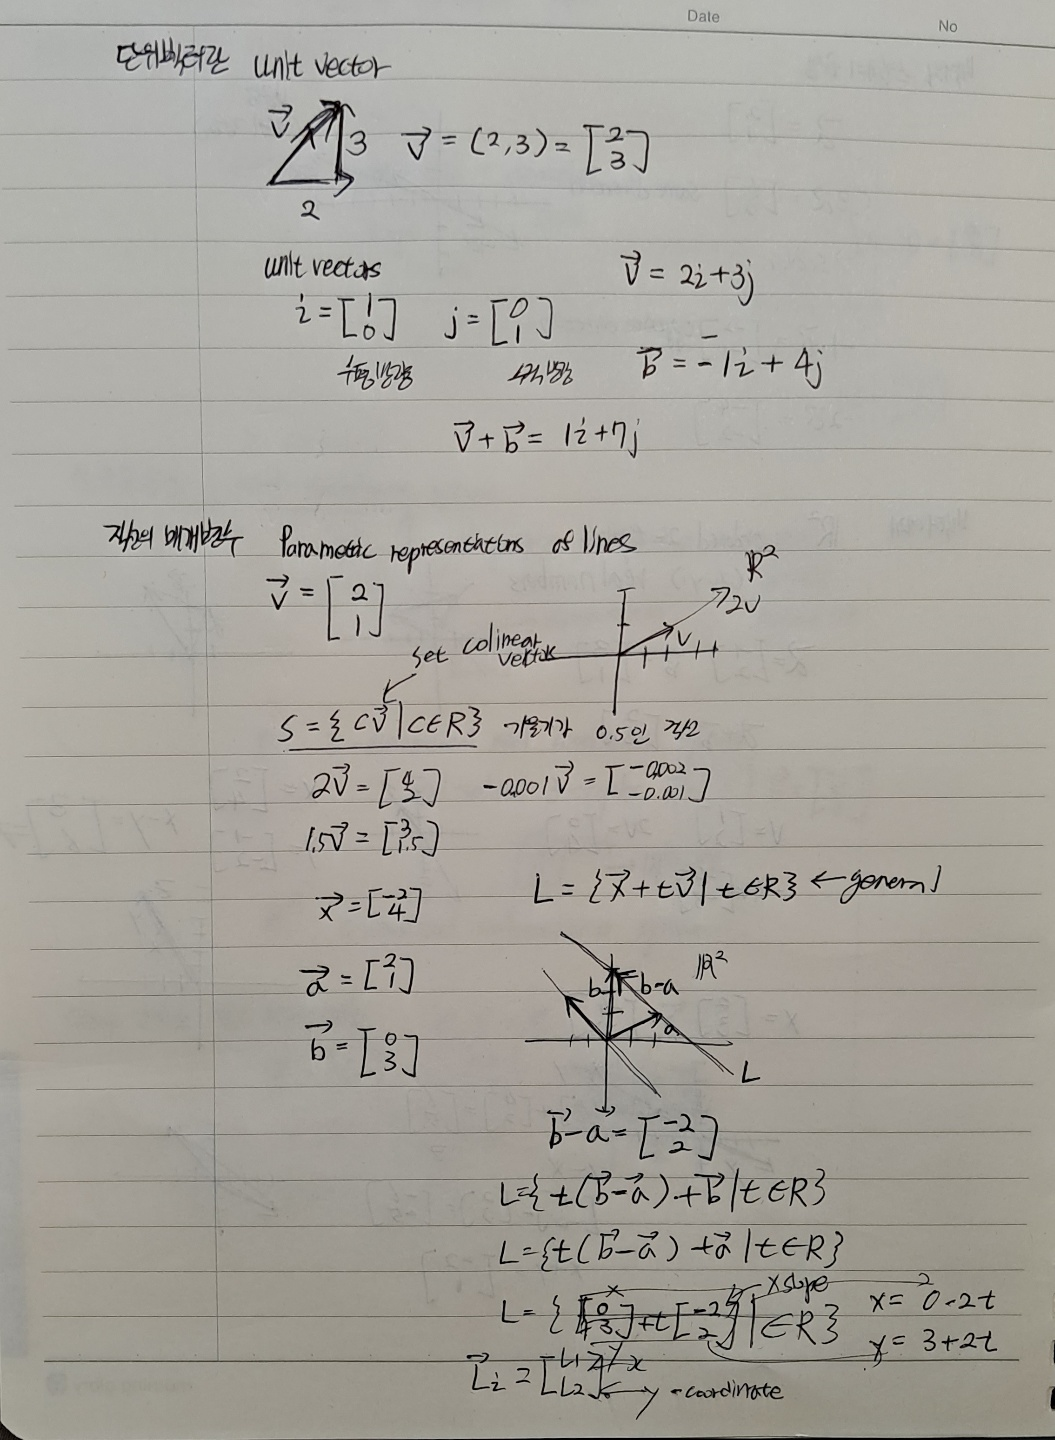 Date
No
단위벡터란 unit vector
v⃗ 3 v⃗ = (2,3) = [2 3]
2
unit vectors v⃗ = 2i+3j
i = [1 0] j = [0 1]
수평방향 수직방향 b⃗ = -1i + 4j
v⃗ + b⃗ = 1i+7j
직선의 매개변수 Parametric representations of lines
v⃗ = [2 1] R² 2v v
set colinear vectors
S = { cv⃗ | c∈R } 기울기가 0.5인 직선
2v⃗ = [4 2] -0.001v⃗ = [-0.002 -0.001]
1.5v⃗ = [3 1.5]
x⃗ = [-2 4] L = {x⃗ + tv⃗ | t∈R} ← general
a⃗ = [2 1] b b-a R² a
b⃗ = [0 3] L
b⃗-a⃗ = [-2 2]
L={t(b⃗-a⃗)+b⃗ | t∈R}
L={t(b⃗-a⃗)+a⃗ | t∈R}
x slope
L = { [0 3]+t[-2 2] | ∈R} x = 0-2t
y = 3+2t
L⃗i = [L1 L2] x
y-coordinate